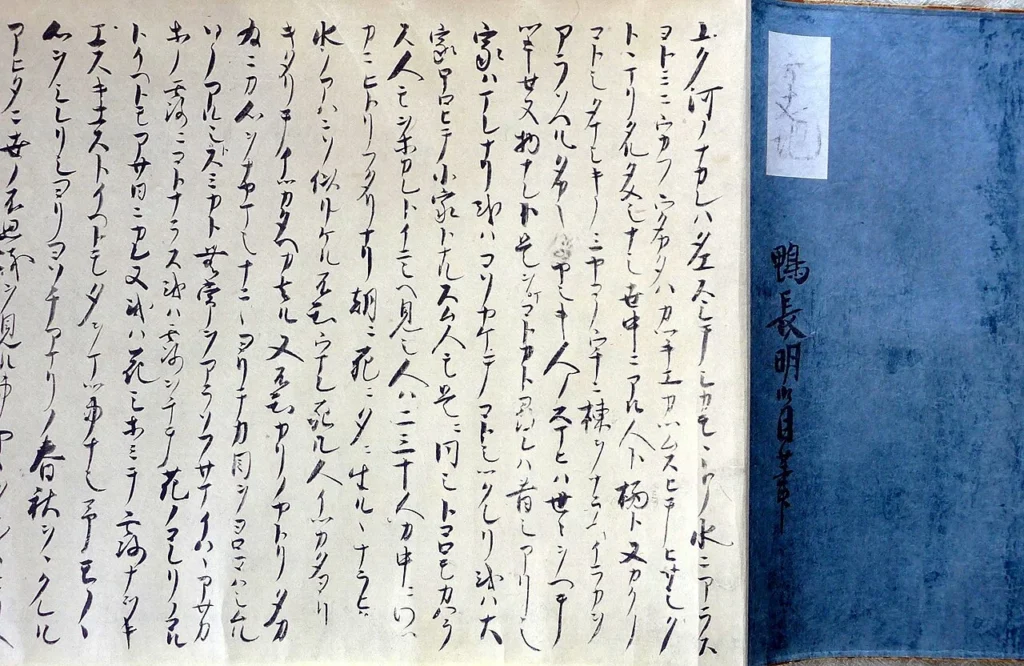 鴨長明自筆
ユク河ノナカレハタエスシテシカモヽトノ水ニアラス
ヨトミニウカフウタカタハカツキエカツムスヒテヒサシク
トヽマリタルタメシナシ世中ニアル人ト栖ト又カクノ
コトシタマシキノミヤコノウチニ棟ヲナラヘイラカヲ
アラソヘルタカキイヤシキ人ノスマヒハ世ヽヲヘテ
ツキセヌ物ナレト是ヲマコトカト尋レハ昔シアリシ
家ハマレナリ或ハコソヤケテコトシツクレリ或ハ大
家ホロヒテ小家トナルスム人モ是ニ同シトコロモカハラ
ス人モヲホカレトイニシヘ見シ人ハ二三十人カ中ニワツ
カニヒトリフタリナリ朝ニ死ニ夕ニ生ルヽナラヒ
水ノアハニソ似リケル不知ウマレ死ル人イツカタヨリ
キタリテイツカタヘカ去ル又不知カリノヤトリタカ
為ニカ心ヲナヤマシナニヽヨリテカ目ヲヨロコハシムル
ソノアルシトスミカト無常ヲアラソフサマイハヽアサカ
ホノ露ニコトナラス或ハ露ヲチテ花ノコレリノコル
トイヘトモアサ日ニカレヌ或ハ花シホミテ露ナヲキ
エスキエストイヘトモ夕ヲマツ事ナシ予モノヽ
心ヲシレリシヨリヨソチアマリノ春秋ヲヽクレル
アヒタニ世ノ不思議ヲ見ル事